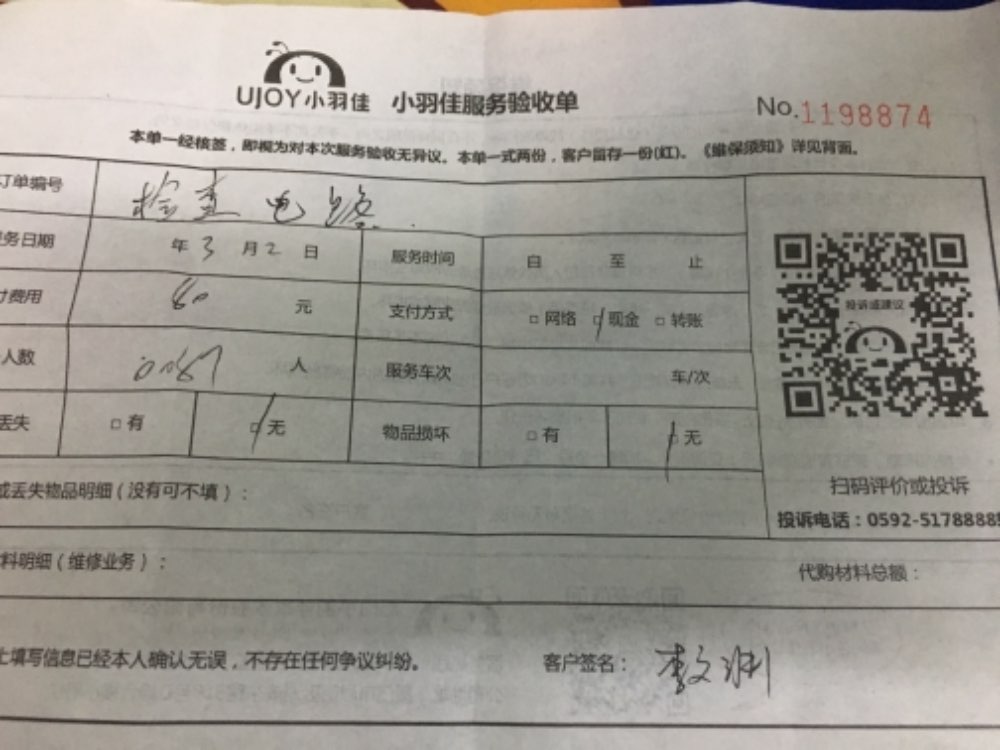 UJOY小羽佳 小羽佳服务验收单 No.1198874
本单一经核签，即视为对本次服务验收无异议。本单一式两份，客户留存一份(红)。《维保须知》详见背面。
订单编号 检查电路
务日期 年3月2日 服务时间 自 至 止
付费用 80 元 支付方式 □网络 □现金 □转账
人数 人 服务车次 车/次
丢失 □有 □无 物品损坏 □有 □无
投诉或建议
扫码评价或投诉
投诉电话：0592-5178888
或丢失物品明细（没有可不填）：
料明细（维修业务）： 代购材料总额：
上填写信息已经本人确认无误，不存在任何争议纠纷。 客户签名：